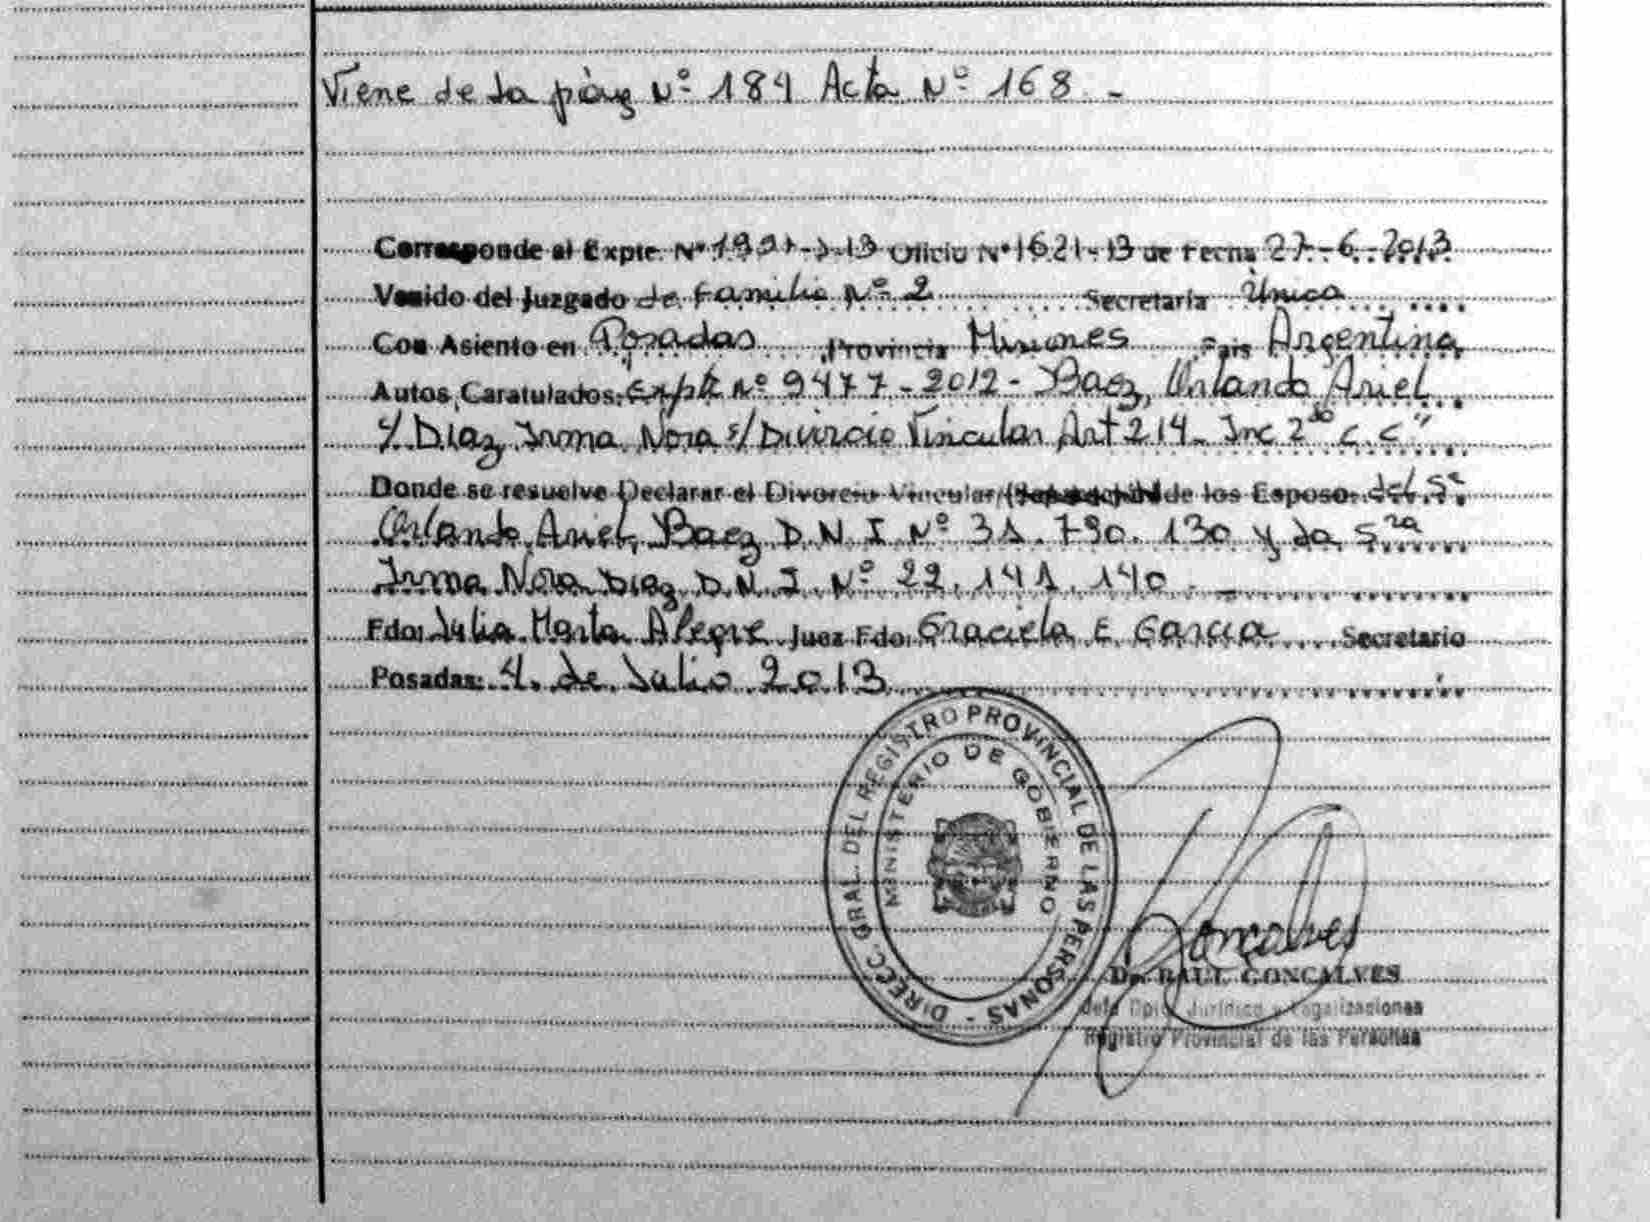 Viene de la pág Nº 184 Acta Nº 168. -
Corresponde al Expte. Nº Oficio Nº 1621-13 de Fecha 27-6-2013
Venido del Juzgado de Familia Nº 2 Secretaría Única
Con Asiento en Posadas Provincia Misiones País Argentina
Autos Caratulados: Expte Nº 9477-2012- Baez, Orlando Ariel
c/ Diaz Irma Nora s/ Divorcio Vincular Art 214 Inc 2do C.C"
Donde se resuelve Declarar el Divorcio Vincular de los Esposo: del Sr
Orlando Ariel Baez D.N.I Nº 31.790.130 y la Sra
Irma Nora Diaz D.N.I. Nº 22.141.140. -
Fdo: Julia Marta Alegre Juez Fdo: Graciela E Garcia Secretario
Posadas: 4 de Julio 2013
DIREC. GRAL. DEL REGISTRO PROVINCIAL DE LAS PERSONAS -
MINISTERIO DE GOBIERNO
Goncalves
Dr. RAUL GONCALVES
Jefe Dpto. Jurídico y Legalizaciones
Registro Provincial de las Personas